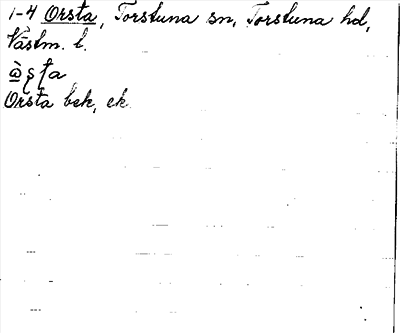 1-4 Orsta, Torstuna sn, Torstuna hd,
Västm. l.
Orsta bek, ek.